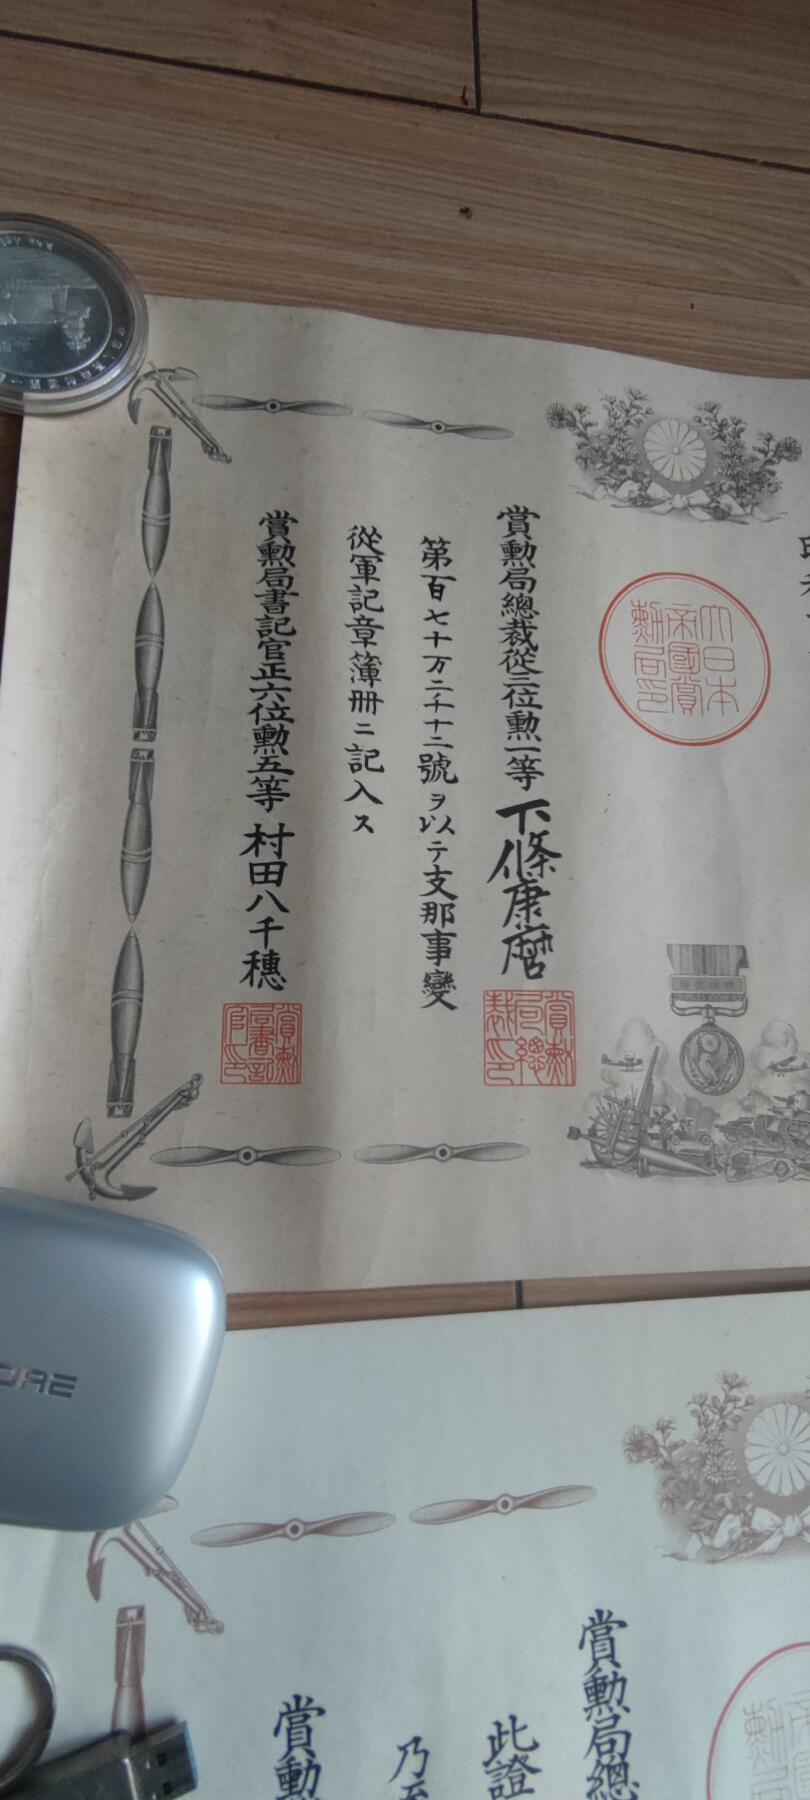 大日本
帝國賞
勲局印
賞勲局總裁從三位勲一等 下條康麿
賞勲局總裁印
第百七十万二千十二號ヲ以テ支那事變
從軍記章簿冊ニ記入ス
賞勲局書記官正六位勲五等 村田八千穗
賞勲局書記官印
賞勲局總
此證
乃
賞勲